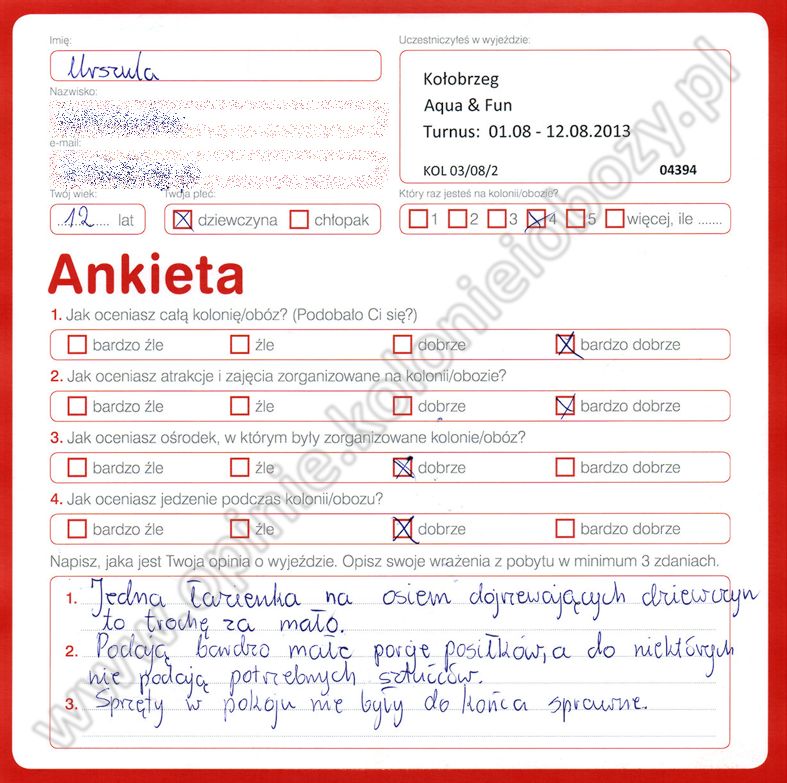 Imię:
Urszula
Uczestniczyłeś w wyjeździe:
Kołobrzeg
Aqua & Fun
Turnus: 01.08 - 12.08.2013
KOL 03/08/2 04394
Nazwisko:
e-mail:
Twój wiek:
12 lat
Twoja płeć:
dziewczyna chłopak
Który raz jesteś na kolonii/obozie?
1 2 3 4 5 więcej, ile .......
Ankieta
1. Jak oceniasz całą kolonię/obóz? (Podobało Ci się?)
bardzo źle źle dobrze bardzo dobrze
2. Jak oceniasz atrakcje i zajęcia zorganizowane na kolonii/obozie?
bardzo źle źle dobrze bardzo dobrze
3. Jak oceniasz ośrodek, w którym były zorganizowane kolonie/obóz?
bardzo źle źle dobrze bardzo dobrze
4. Jak oceniasz jedzenie podczas kolonii/obozu?
bardzo źle źle dobrze bardzo dobrze
Napisz, jaka jest Twoja opinia o wyjeździe. Opisz swoje wrażenia z pobytu w minimum 3 zdaniach.
1. Jedna łazienka na osiem dojrzewających dziewczyn
to trochę za mało.
2. Podają bardzo małe porcje posiłków, a do niektórych
nie podają potrzebnych sztućców.
3. Sprzęty w pokoju nie były do końca sprawne.
www.opinie.kolonieiobozy.pl